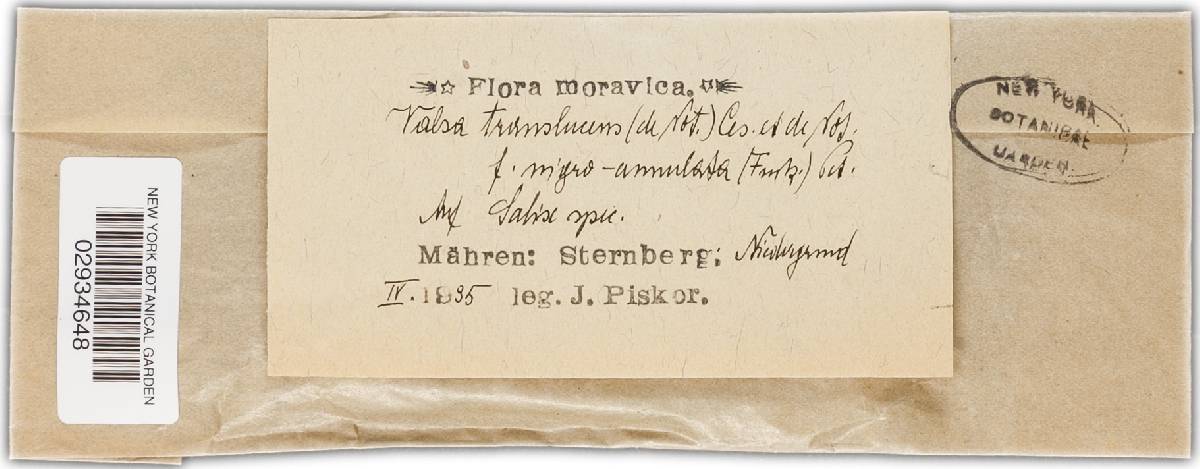 Flora moravica.
Valsa translucens (de Not.) Ces. et de Not.
f. nigro-annulata (Fuck.) Pet.
Auf Salix spec.
Mähren: Sternberg; Niedergrund
IV. 1935 leg. J. Piskor.
NEW YORK
BOTANICAL
GARDEN.
NEW YORK BOTANICAL GARDEN
02934648